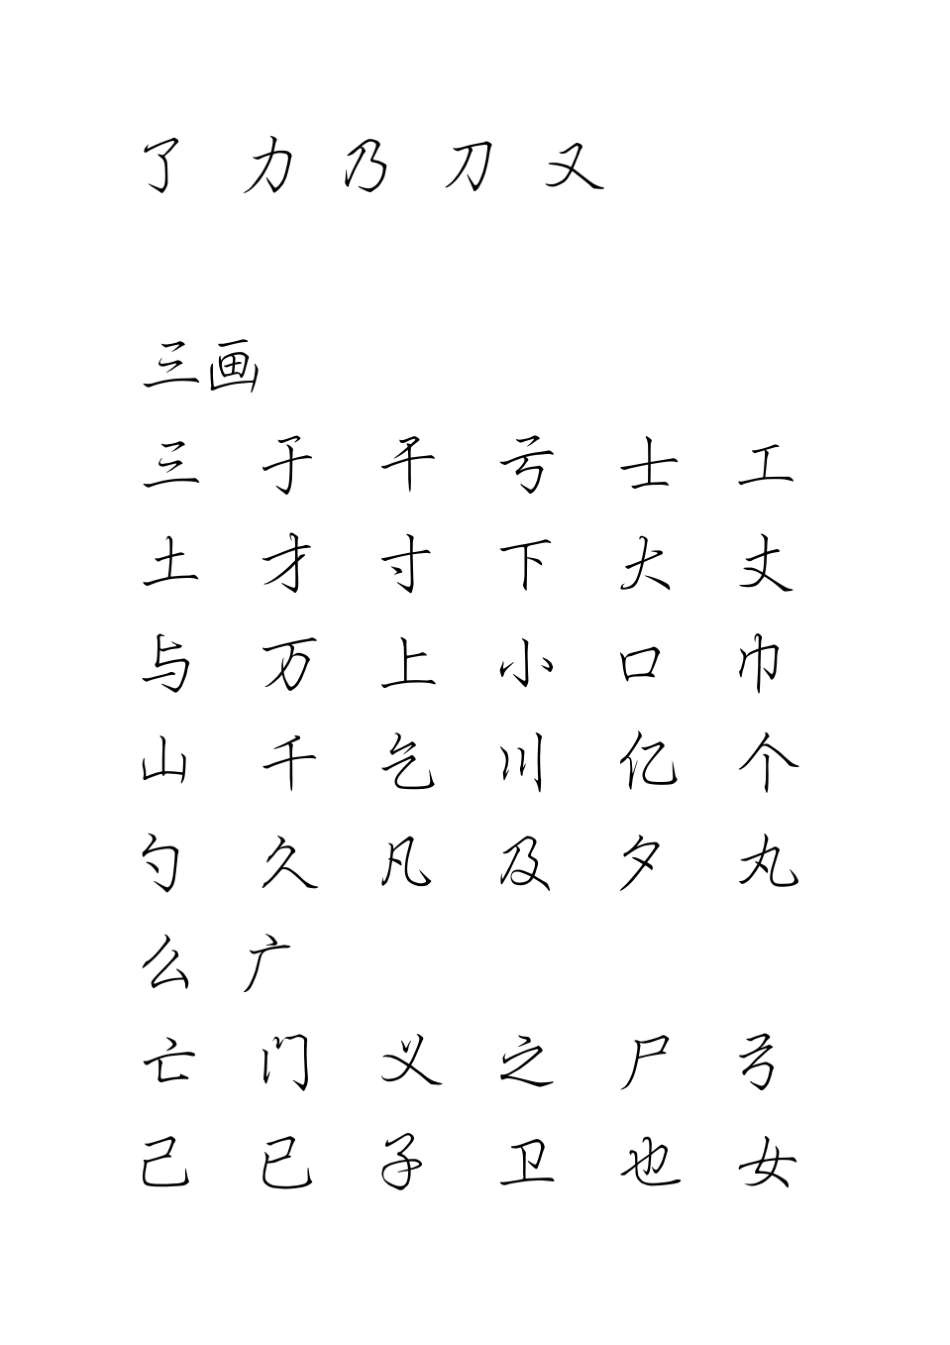 了 力 乃 刀 又
三画
三 于 干 亏 士 工
土 才 寸 下 大 丈
与 万 上 小 口 巾
山 千 乞 川 亿 个
勺 久 凡 及 夕 丸
么 广
亡 门 义 之 尸 弓
己 已 子 卫 也 女